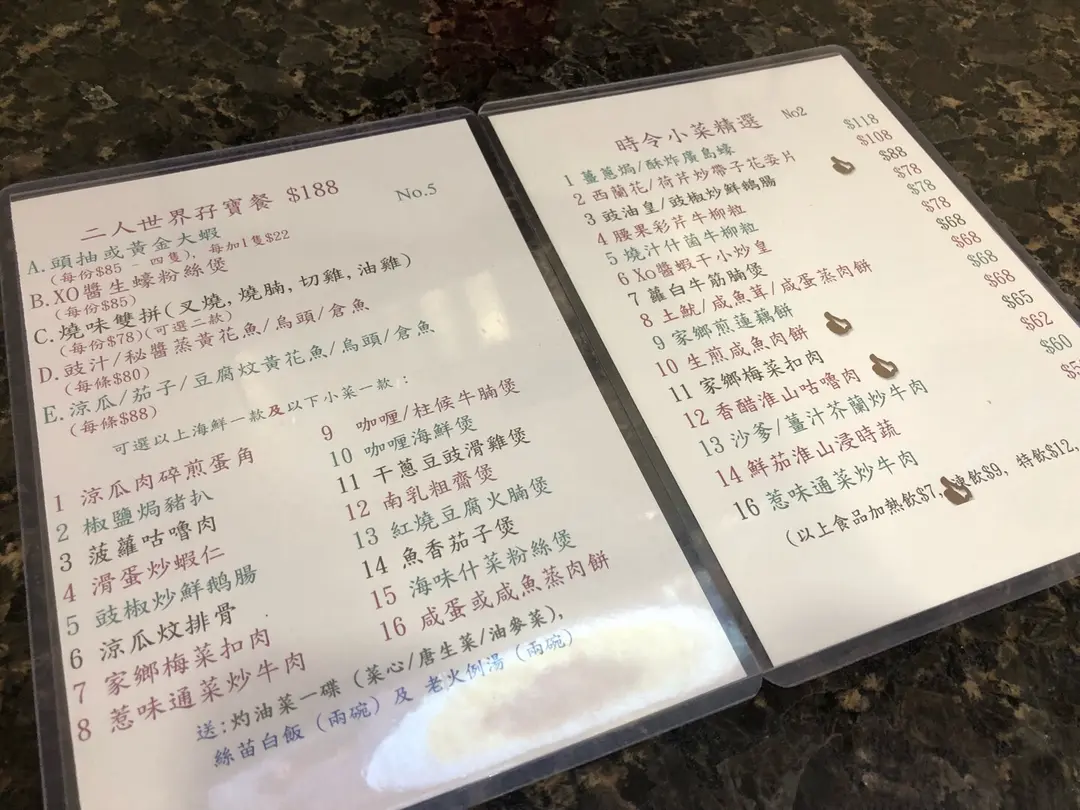 二人世界孖寶餐 $188
No.5
A.頭抽或黃金大蝦
(每份$85 - 四隻), 每加1隻$22
B.XO醬生蠔粉絲煲
(每份$85)
C.燒味雙拼(叉燒, 燒腩, 切雞, 油雞)
(每份$78)(可選二款)
D.豉汁/秘醬蒸黃花魚/烏頭/倉魚
(每條$80)
E.涼瓜/茄子/豆腐炆黃花魚/烏頭/倉魚
(每條$88)
可選以上海鮮一款及以下小菜一款 :
1 涼瓜肉碎煎蛋角
2 椒鹽焗豬扒
3 菠蘿咕嚕肉
4 滑蛋炒蝦仁
5 豉椒炒鮮鵝腸
6 涼瓜炆排骨
7 家鄉梅菜扣肉
8 惹味通菜炒牛肉
9 咖喱/柱候牛腩煲
10 咖喱海鮮煲
11 干蔥豆豉滑雞煲
12 南乳粗齋煲
13 紅燒豆腐火腩煲
14 魚香茄子煲
15 海味什菜粉絲煲
16 咸蛋或咸魚蒸肉餅
送:灼油菜一碟 (菜心/唐生菜/油麥菜),
絲苗白飯 (兩碗) 及 老火例湯 (兩碗)
時令小菜精選 No2
1 薑蔥焗/酥炸廣島蠔 $118
2 西蘭花/荷芹炒帶子花姿片 $108
3 豉油皇/豉椒炒鮮鵝腸 $88
4 腰果彩芹牛柳粒 $78
5 燒汁什菌牛柳粒 $78
6 Xo醬蝦干小炒皇 $78
7 蘿白牛筋腩煲 $68
8 土魷/咸魚茸/咸蛋蒸肉餅 $68
9 家鄉煎蓮藕餅 $68
10 生煎咸魚肉餅 $68
11 家鄉梅菜扣肉 $65
12 香醋淮山咕嚕肉 $62
13 沙爹/薑汁芥蘭炒牛肉 $60
14 鮮茄淮山浸時蔬
16 惹味通菜炒牛肉
(以上食品加熱飲$7, 凍飲$9, 特飲$12,